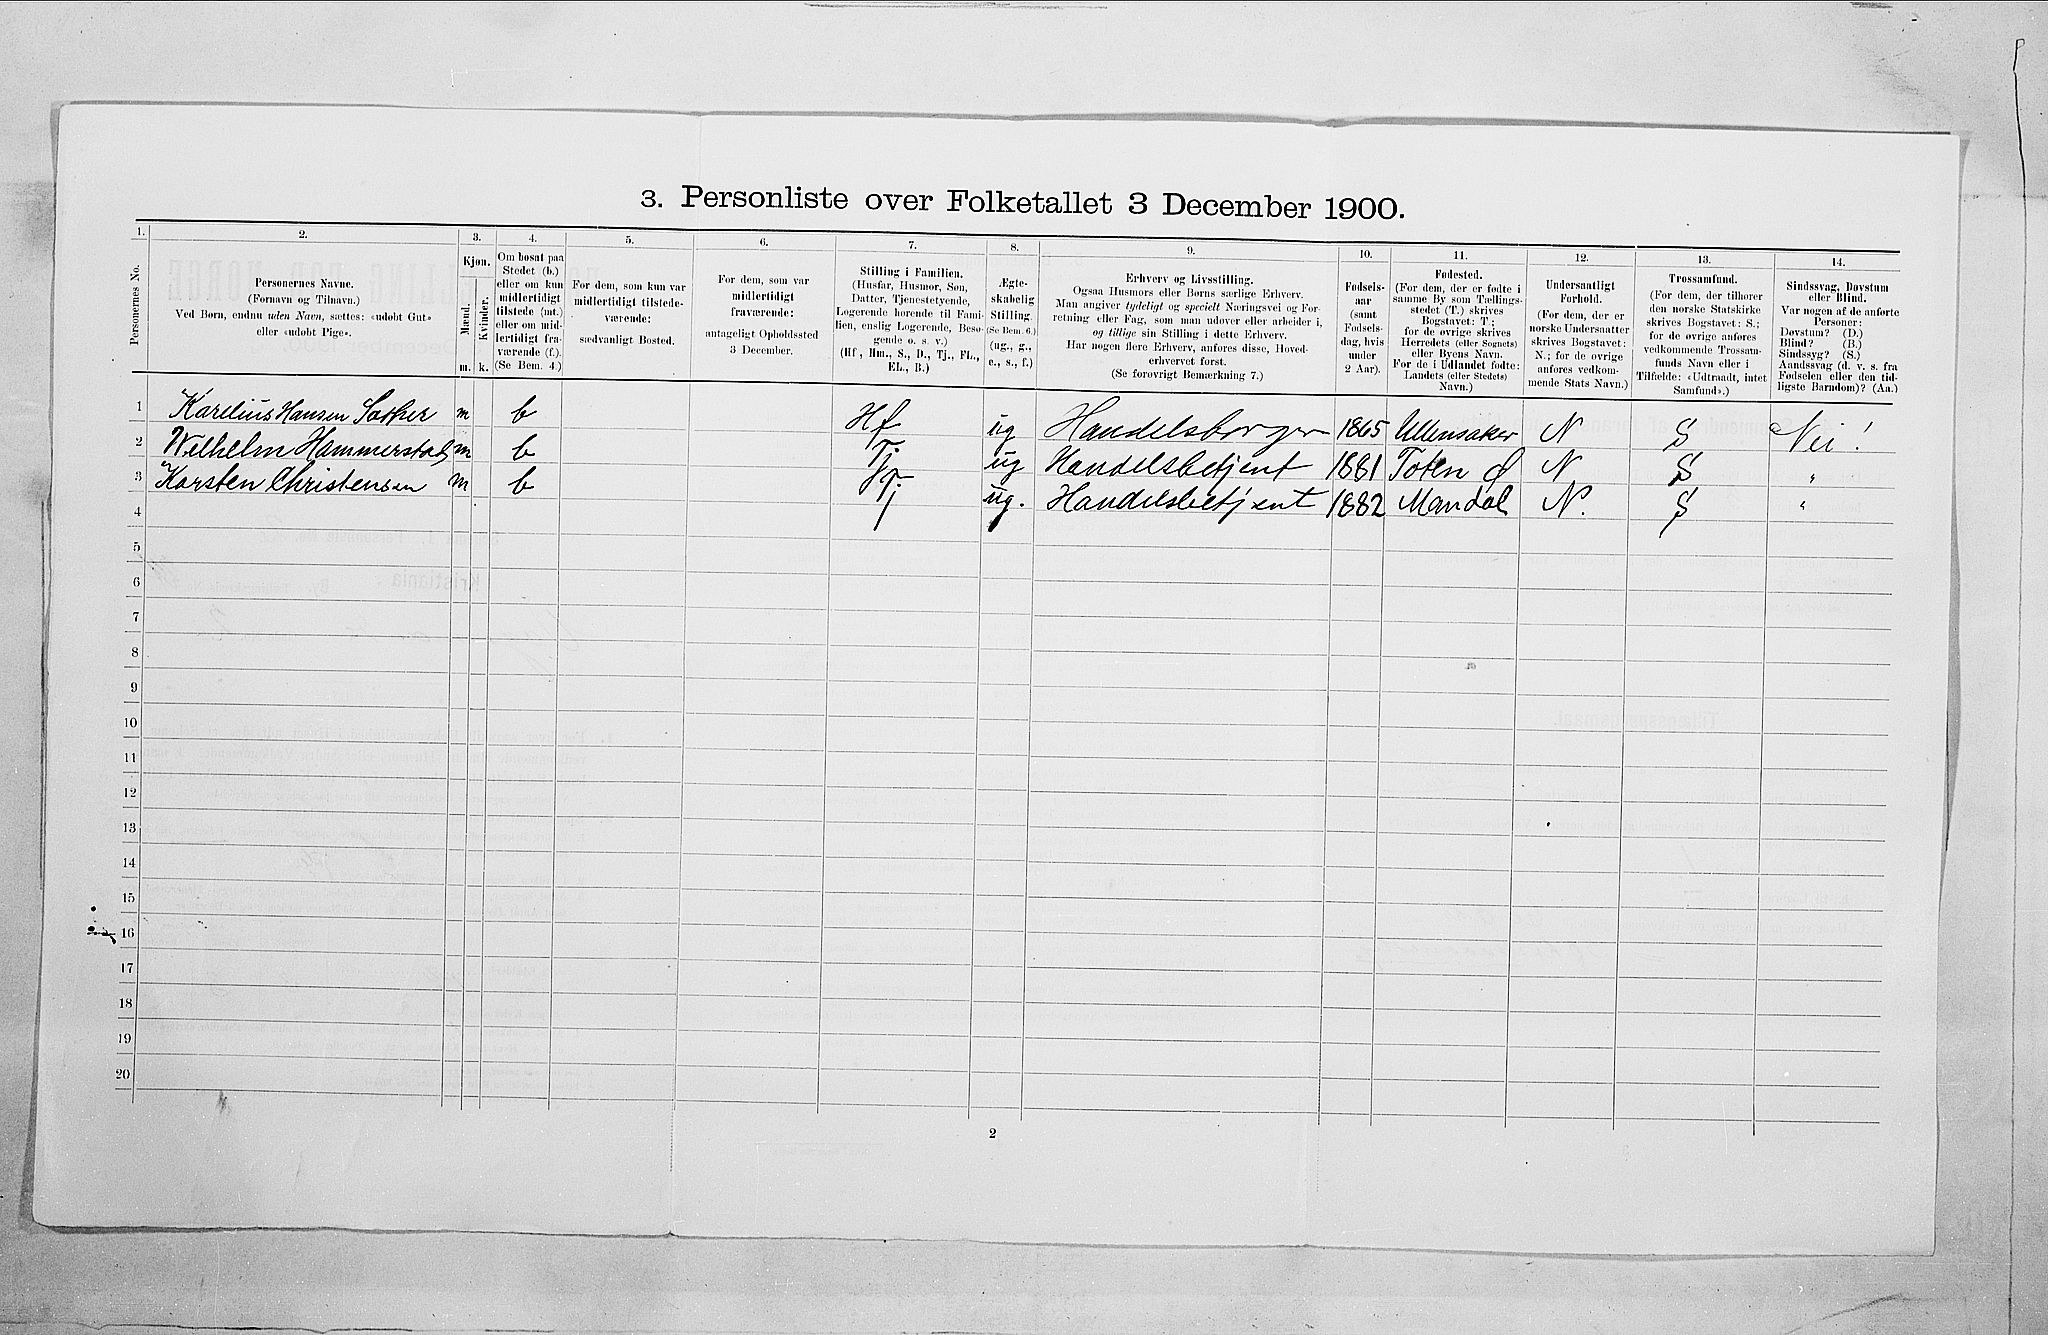 3. Personliste over Folketallet 3 December 1900.
1. 2. 3. 4. 5. 6. 7. 8. 9. 10. 11. 12. 13. 14.
Personernes No.
Personernes Navne.
(Fornavn og Tilnavn.)
Ved Børn, endnu uden Navn, sættes: «udøbt Gut»
eller «udøbt Pige».
Kjøn.
Mænd.
Kvinder.
m. k.
Om bosat paa
Stedet (b.)
eller om kun
midlertidigt
tilstede (mt.)
eller om mid-
lertidigt fra-
værende (f.).
(Se Bem. 4.)
For dem, som kun var
midlertidigt tilstede-
værende:
sædvanligt Bosted.
For dem, som var
midlertidigt
fraværende:
antageligt Opholdssted
3 December.
Stilling i Familien.
(Husfar, Husmor, Søn,
Datter, Tjenestetyende,
Logerende hørende til Fami-
lien, enslig Logerende, Besø-
gende o. s. v.)
(Hf, Hm., S., D., Tj., FL.,
EL., B.)
Ægte-
skabelig
Stilling.
(Se Bem. 6.)
(ug., g.,
e., s., f.)
Erhverv og Livsstilling.
Ogsaa Husmors eller Børns særlige Erhverv.
Man angiver tydeligt og specielt Næringsvei og For-
retning eller Fag, som man udøver eller arbeider i,
og tillige sin Stilling i dette Erhverv.
Har nogen flere Erhverv, anføres disse, Hoved-
erhvervet først.
(Se forøvrigt Bemærkning 7.)
Fødsels-
aar
(samt
Fødsels-
dag, hvis
under
2 Aar).
Fødested.
(For dem, der er fødte i
samme By som Tællings-
stedet (T.) skrives
Bogstavet: T;
for de øvrige skrives
Herredets (eller Sognets)
eller Byens Navn.
For de i Udlandet fødte:
Landets (eller Stedets)
Navn.)
Undersaatligt
Forhold.
(For dem, der er
norske Undersaatter
skrives Bogstavet:
N.; for de øvrige
anføres vedkom-
mende Stats Navn.)
Trossamfund.
(For dem, der tilhører
den norske Statskirke
skrives Bogstavet: S.;
for de øvrige anføres
vedkommende Trossam-
funds Navn eller i
Tilfælde: «Udtraadt, intet
Samfund».)
Sindssvag, Døvstum
eller Blind.
Var nogen af de anførte
Personer:
Døvstum? (D.)
Blind? (B.)
Sindssyg? (S.)
Aandssvag (d. v. s. fra
Fødselen eller den tid-
ligste Barndom)? (Aa.)
1 Karelius Hansen Sæther m b Hf ug Handelsborger 1865 Ullensaker N S Nei!
2 Wilhelm Hammerstad m b Tj ug Handelsbetjent 1881 Toten Ø N S "
3 Karsten Christensen m b Tj ug. Handelsbetjent 1882 Mandal N. S "
4
5
6
7
8
9
10
11
12
13
14
15
16
17
18
19
20
2